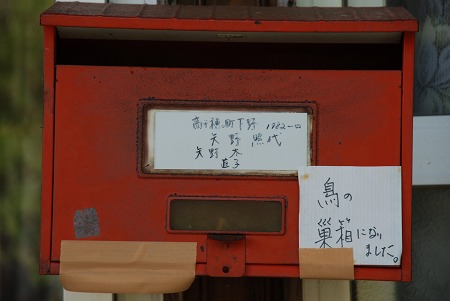 高千穂町下野 1982-イ
矢野 照代
矢野 大
直子
鳥の
巣箱になり
ました。